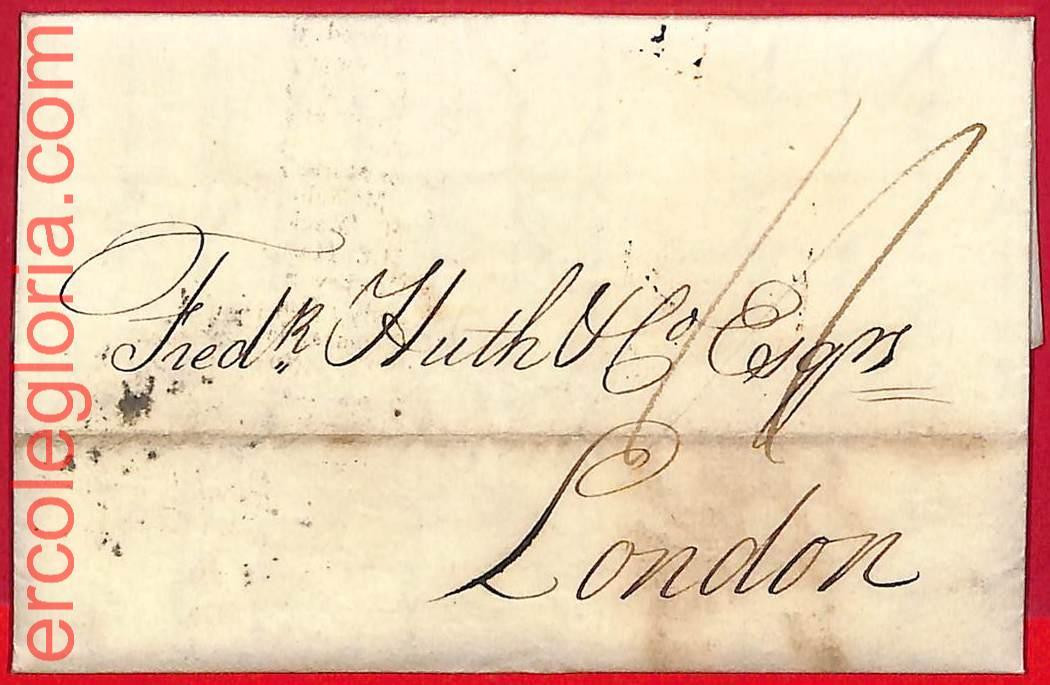 ercolegloria.com
Fredk Huth & Co Esqrs
London